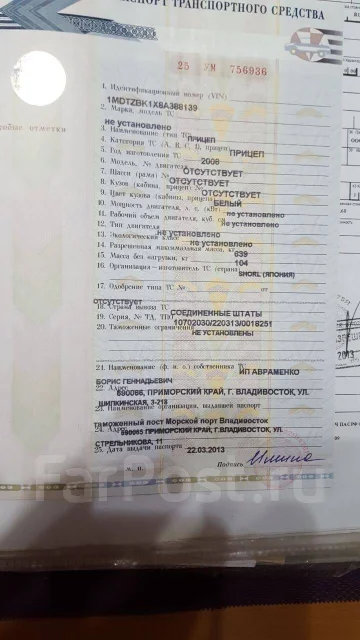 СПОРТ ТРАНСПОРТНОГО СРЕДСТВА
25 УМ 756936
1. Идентификационный номер (VIN)
1MDTZBK1X8A388139
2. Марка, модель ТС
не установлено
3. Наименование (тип ТС)
ПРИЦЕП
4. Категория ТС (A, B, C, D, прицеп)
ПРИЦЕП
5. Год изготовления ТС
2008
6. Модель, № двигателя
ОТСУТСТВУЕТ
7. Шасси (рама) №
ОТСУТСТВУЕТ
8. Кузов (кабина, прицеп) №
ОТСУТСТВУЕТ
9. Цвет кузова (кабины, прицепа)
БЕЛЫЙ
10. Мощность двигателя, л. с. (кВт)
не установлено
11. Рабочий объем двигателя, куб. см
не установлено
12. Тип двигателя
не установлено
13. Экологический класс
не установлено
14. Разрешенная максимальная масса, кг
639
15. Масса без нагрузки, кг
104
16. Организация – изготовитель ТС (страна)
SHORL (ЯПОНИЯ)
17. Одобрение типа ТС № от
отсутствует
18. Страна вывоза ТС
СОЕДИНЕННЫЕ ШТАТЫ
19. Серия, № ТД, ТПО
10702030/220313/0018251
20. Таможенные ограничения
НЕ УСТАНОВЛЕНЫ
21. Наименование (ф. и. о.) собственника ТС
ИП АВРАМЕНКО
БОРИС ГЕННАДЬЕВИЧ
22. Адрес
690066, ПРИМОРСКИЙ КРАЙ, Г. ВЛАДИВОСТОК, УЛ.
ШИПКИНСКАЯ, 3-218
23. Наименование организации, выдавшей паспорт
таможенный пост Морской порт Владивосток
24. Адрес
690065 ПРИМОРСКИЙ КРАЙ, Г.ВЛАДИВОСТОК, УЛ.
СТРЕЛЬНИКОВА, 11
25. Дата выдачи паспорта
22.03.2013
М. П. Подпись
обые отметки
2013
FarPost.ru